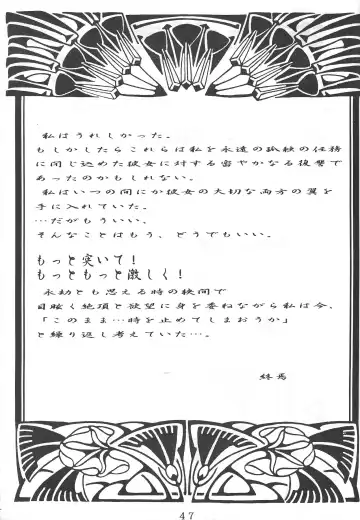 私はうれしかった。
もしかしたらこれらは私を永遠の孤独の任務
に閉じ込めた彼女に対する密やかなる復讐で
あったのかもしれない。
私はいつの間にか彼女の大切な両方の翼を
手に入れていた。
…だがもういい、
そんなことはもう、どうでもいい。
もっと突いて!
もっともっと激しく!
永劫とも思える時の狭間で
目眩く絶頂と欲望に身を委ねながら私は今、
「このまま…時を止めてしまおうか」
と繰り返し考えていた…。
終焉
47